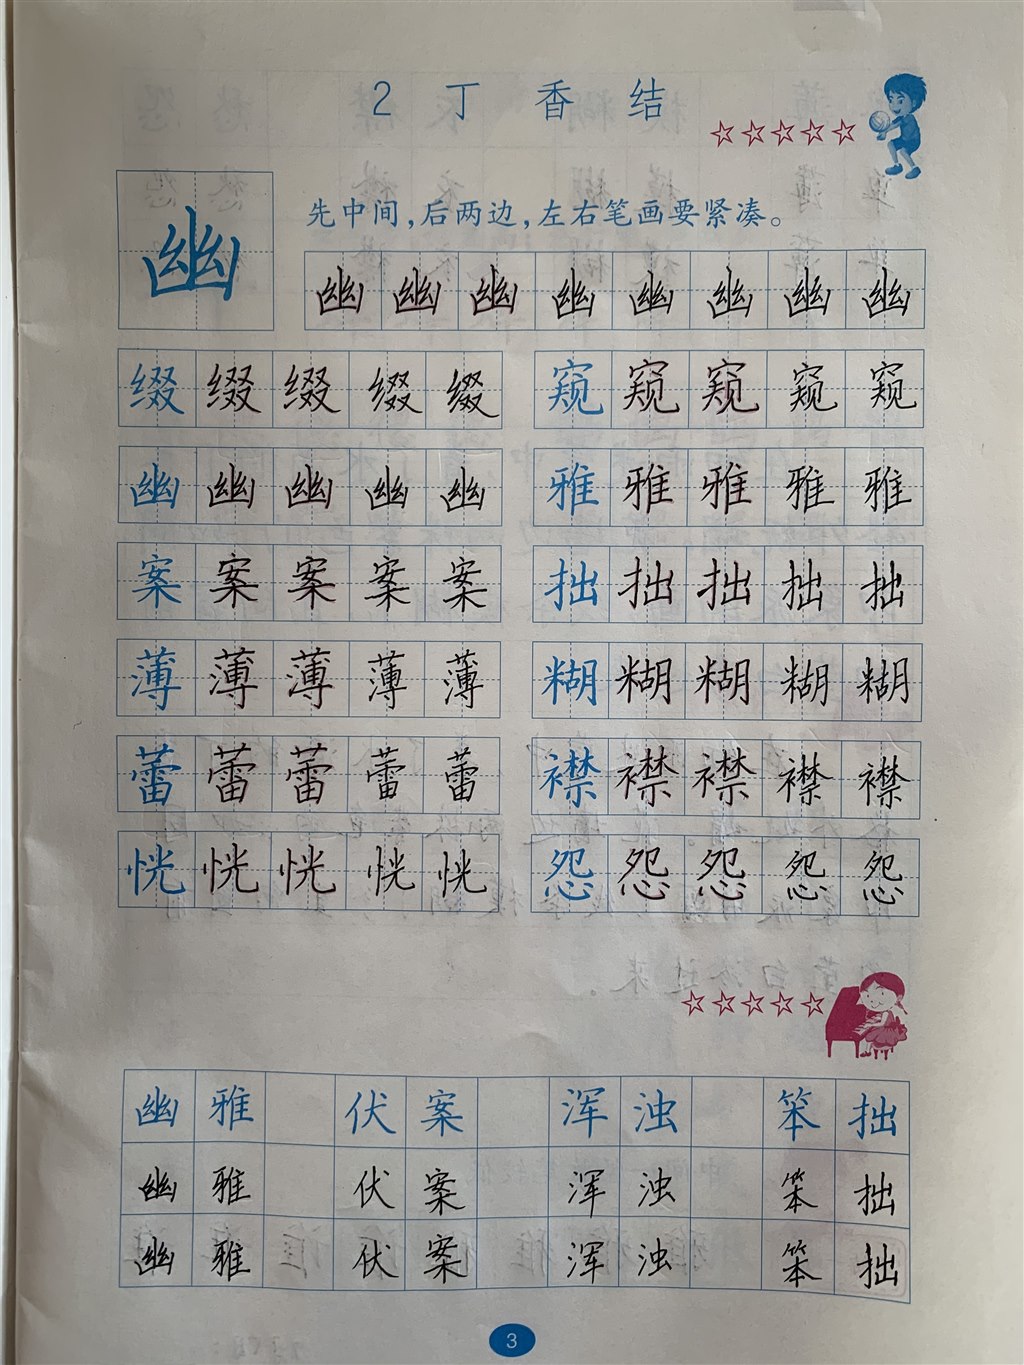 2 丁香结
先中间，后两边，左右笔画要紧凑。
幽 幽 幽 幽 幽 幽 幽 幽 幽
缀 缀 缀 缀 缀 窥 窥 窥 窥 窥
幽 幽 幽 幽 幽 雅 雅 雅 雅 雅
案 案 案 案 案 拙 拙 拙 拙 拙
薄 薄 薄 薄 薄 糊 糊 糊 糊 糊
蕾 蕾 蕾 蕾 蕾 襟 襟 襟 襟 襟
恍 恍 恍 恍 恍 怨 怨 怨 怨 怨
幽雅 伏案 浑浊 笨拙
幽雅 伏案 浑浊 笨拙
幽雅 伏案 浑浊 笨拙
3